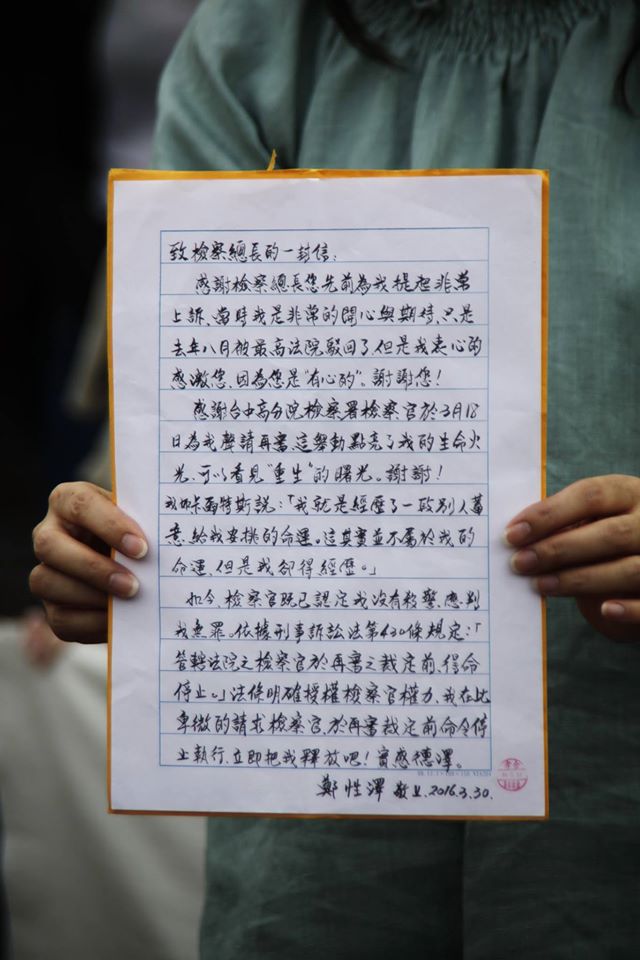 致檢察總長的一封信：
感謝檢察總長您先前為我提起非常
上訴，當時我是非常的開心與期待，只是
去年八月被最高法院駁回了，但是我衷心的
感激您，因為您是"有心的"。謝謝您！
感謝台中高分院檢察署檢察官於3月18
日為我聲請再審，這舉動點亮了我的生命火
光，可以看見"重生"的曙光。謝謝！
說：「我就是經歷了一致別人蓄
意，給我安排的命運。這其實並不屬於我的
命運，但是我卻得經歷。」
如今，檢察官既已認定我沒有殺警，應判
我無罪。依據刑事訴訟法第430條規定：「
管轄法院之檢察官於再審之裁定前，得命
停止。」法條明確授權檢察官權力，我在此
卑微的請求檢察官，於再審裁定前命令停
止執行，立即把我釋放吧！實感德澤。
鄭性澤 敬上.2016.3.30.